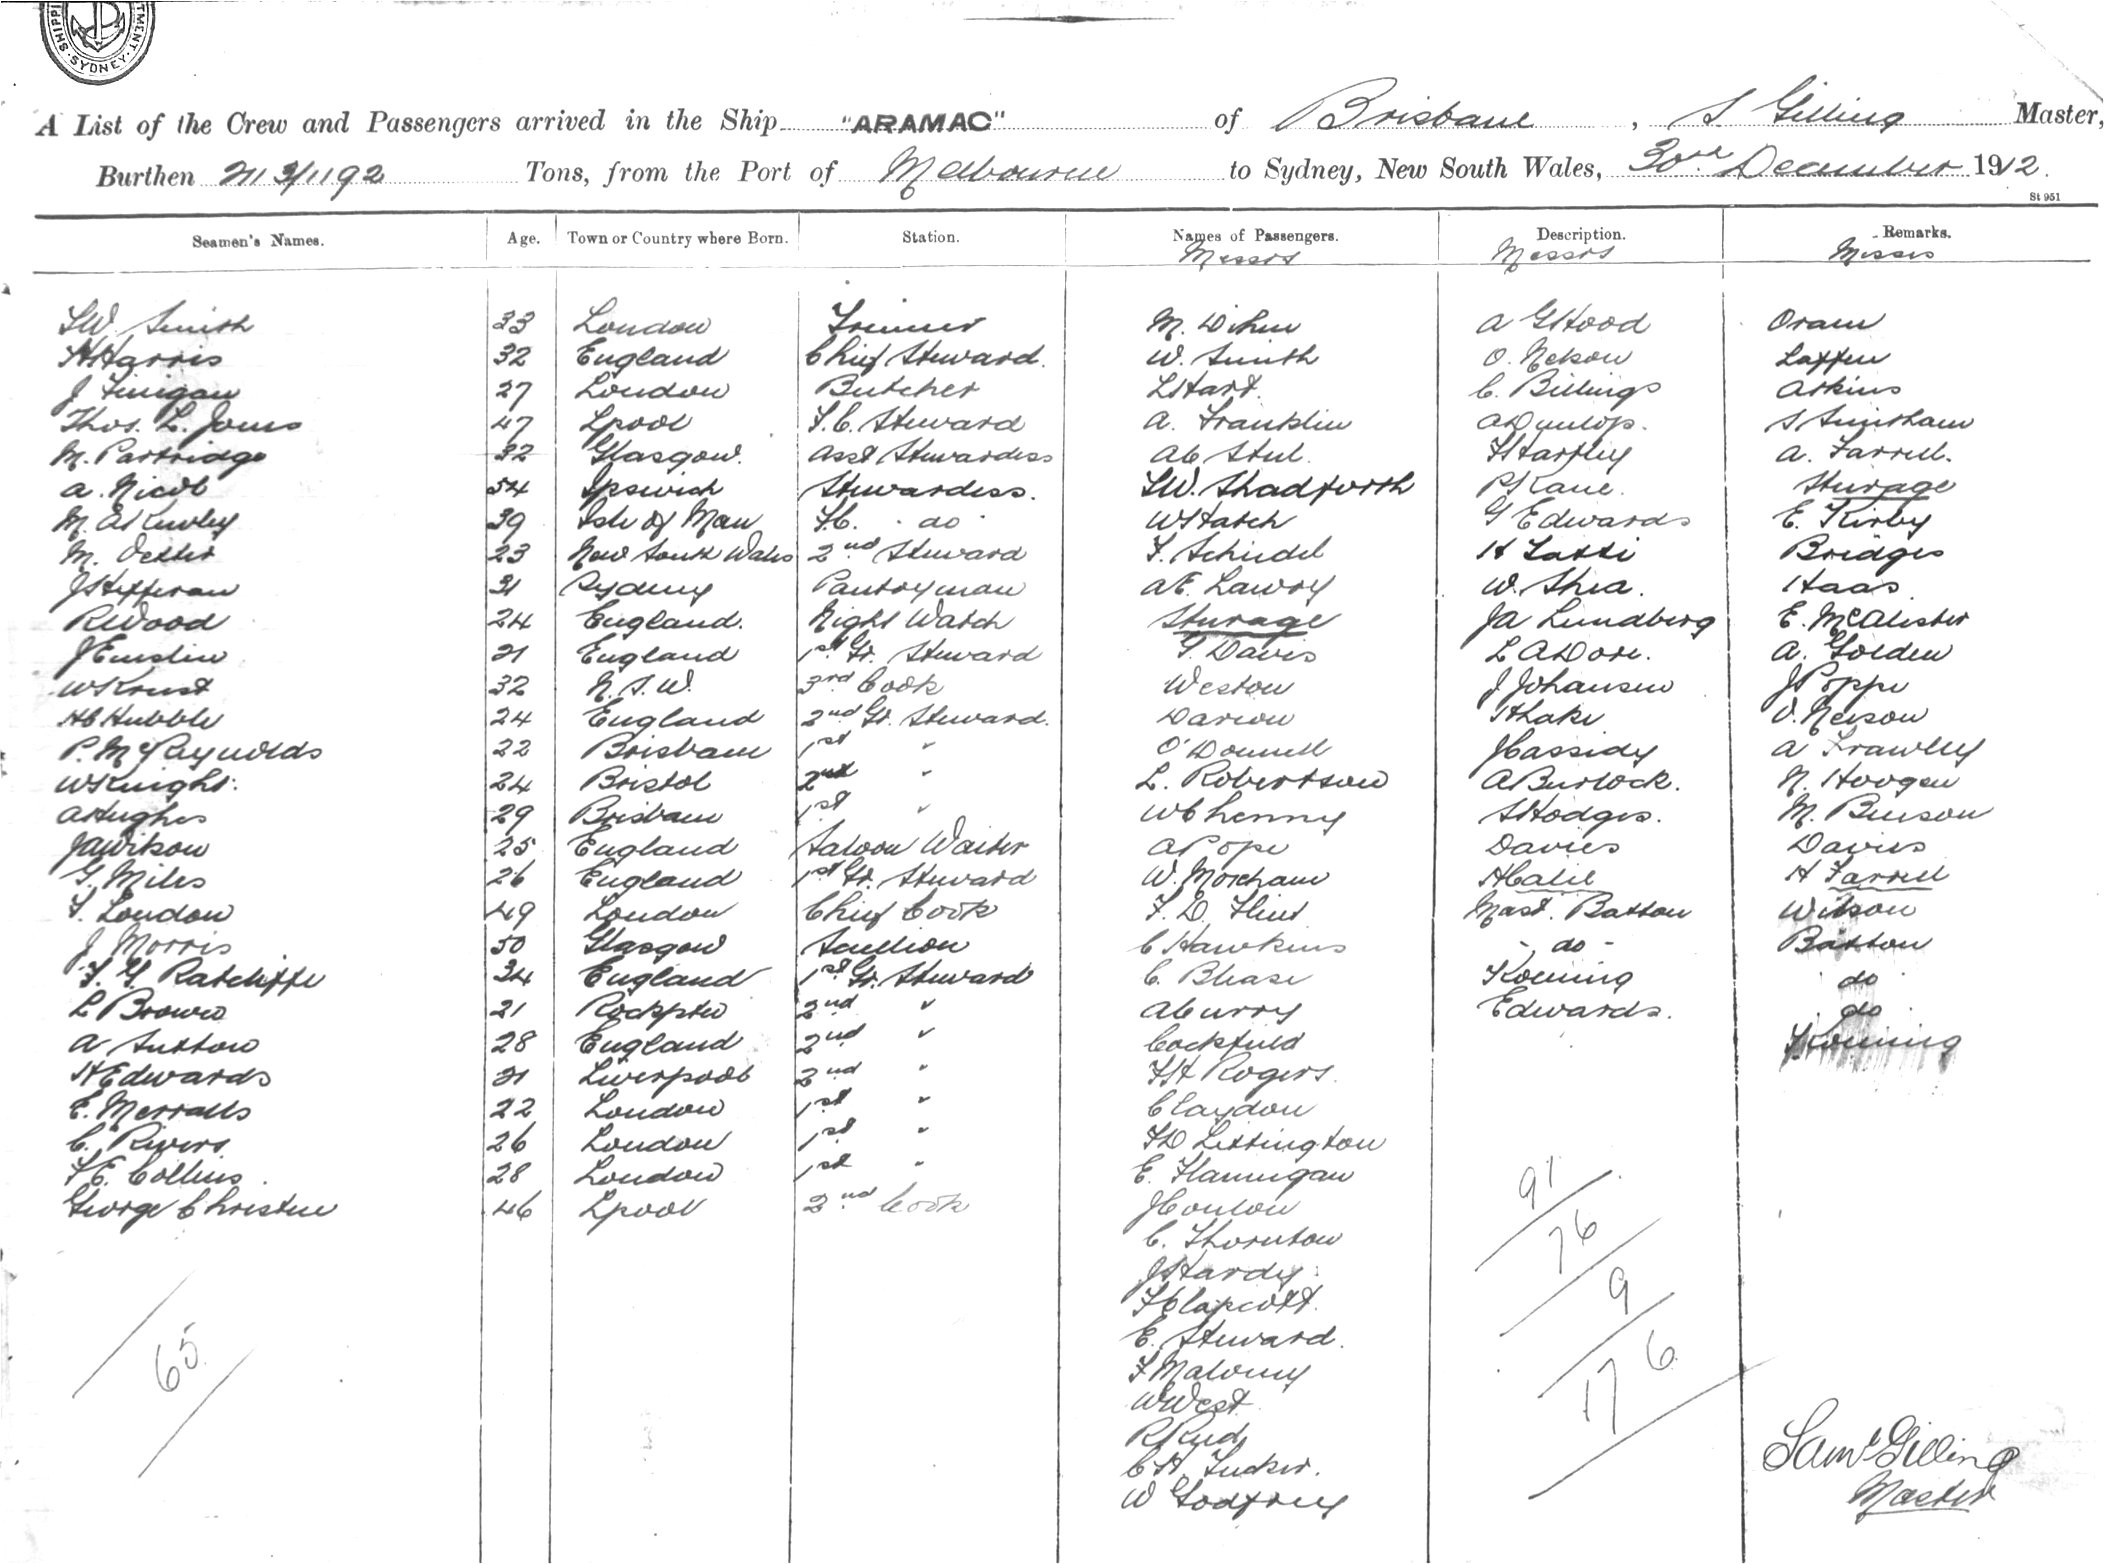 SHIPPI
TMENT
SYDNEY
A List of the Crew and Passengers arrived in the Ship "ARAMAC" of Brisbane, S Gilling Master,
Burthen Tons, from the Port of Melbourne to Sydney, New South Wales, 30th December 1912.
St 951
Seamen's Names. Age. Town or Country where Born. Station. Names of Passengers. Description. Remarks.
Messrs Messrs Misses
Smith 33 London Trimmer M. A G Hood Oram
H Harris 32 England Chief Steward. W. Smith O. Nelson
J Finigan 27 London Butcher L Hart. C. Billings Atkins
Thos. L. Jones 47 Lpool F.C. Steward A. Franklin A Dunlop. S Smitham
M. Partridge 32 Glasgow. Asst Stewardess F Hartley A. Farrell.
A. Nicol 54 Ipswich Stewardess. Shadforth P Kane. Steerage
M. A Kewley 39 Isle of Man F.C. do W Hatch G Edwards E. Kirby
M. 23 New South Wales 2nd Steward F. Schiedel H Bridges
J Hefferan 31 Sydney Pantryman A E. Lawry W. Shea. Haas
R Wood 24 England. Night Watch Steerage J A Lundberg E. McAlister
J Emslie 21 England 1st Gr. Steward Davis L A Dore. A. Golden
W Krust 32 N.S.W. 3rd Cook Weston J Johansen J Poppe
H C Hubble 24 England 2nd Gr. Steward. H Lake O. Nelson
P. McReynolds 22 Brisbane 1st " O'Donnell J Cassidy A Frawley
W Knight. 24 Bristol 2nd " L. Robertson A Burlock. N. Hoogen
A Hughes 29 Brisbane 1st " W Chenny S Hodges. M. Benson
J A Wilson 25 England Saloon Waiter A Pope Davies Davies
G. Miles 26 England 1st Gr. Steward W. Morcham H Calil H Farrell
London 49 London Chief Cook F. D. Flint Mast. Batton Wilson
J Morris 50 Glasgow Scullion C Hawkins - do - Batton
F. G. Ratcliffe 34 England 1st Gr. Steward C. Blease Koening do
L Brown 21 Rockptn 2nd " A Curry Edwards. do
A Sutton 28 England 2nd " Cockfield Koening
H Edwards 21 Liverpool 2nd " F H Rogers
E. Merralls 22 London 1st " Claydon
C. Rivers 26 London 1st " F D Littington
F E. Collins 28 London 1st " E. Flannigan
George Christie 46 Lpool 2nd Cook J Conlon
C. Thornton
J Hardy
F Clapcott.
E. Steward.
F Maloney
W West
R Reid
C H. Tucker.
W Godfrey
65
91
76
9
176
Saml Gilling
Master